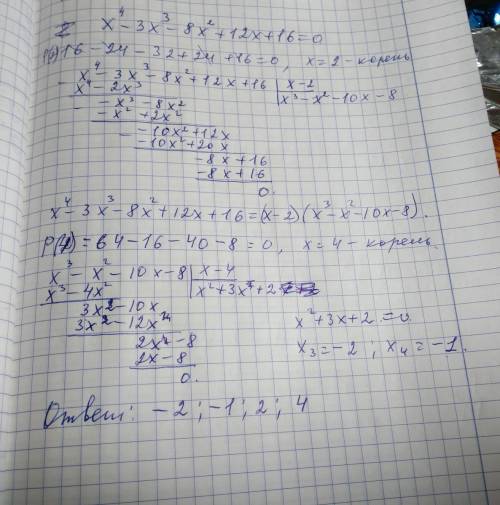 x⁴ - 3x³ - 8x² + 12x + 16 = 0
16 - 24 - 32 + 24 + 16 = 0, x = 2 - корень
x⁴ - 3x³ - 8x² + 12x + 16 | x - 2
x⁴ - 2x³ | x³ - x² - 10x - 8
- x³ - 8x²
- x² + 2x²
- 10x² + 12x
- 10x² + 20x
- 8x + 16
- 8x + 16
0.
x⁴ - 3x³ - 8x² + 12x + 16 = (x - 2)(x³ - x² - 10x - 8).
P(4) = 64 - 16 - 40 - 8 = 0, x = 4 - корень.
x³ - x² - 10x - 8 | x - 4
x³ - 4x² | x² + 3x + 2
3x² - 10x
3x² - 12x
x² + 3x + 2 = 0.
2x - 8
2x - 8
x₃ = -2 ; x₄ = -1.
0.
Ответ: -2 ; -1 ; 2 ; 4